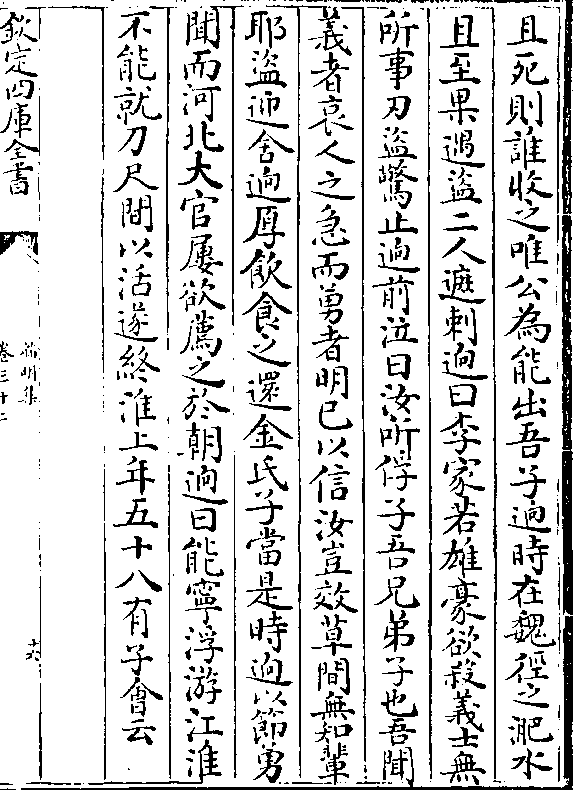 且死則誰收之唯公為能出吾子逈時在魏徑之淝水
且至果遇盜二人遮刺逈曰李家若雄豪欲殺義士無
所事刃盜驚止逈前泣曰汝所俘子吾兄弟子也吾聞
義者哀人之急而勇者明己以信汝豈效草間無知輩
耶盜迎舍逈厚飲食之還金氏子當是時逈以節勇
聞而河北大官屢欲薦之於朝逈曰能寧浮游江淮
不能就刀尺間以活遂終淮上年五十八有子會云
欽定四庫全書
卷三十二